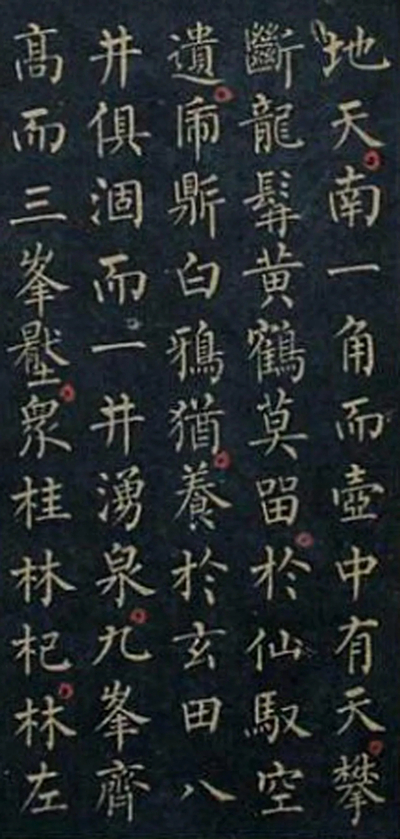 地天南一角而壺中有天攀
斷龍髯黃鶴莫留於仙馭空
遺鼎白鴉猶養於玄田八
井俱涸而一井湧泉九峯齊
髙而三峯壓衆桂林杞林左